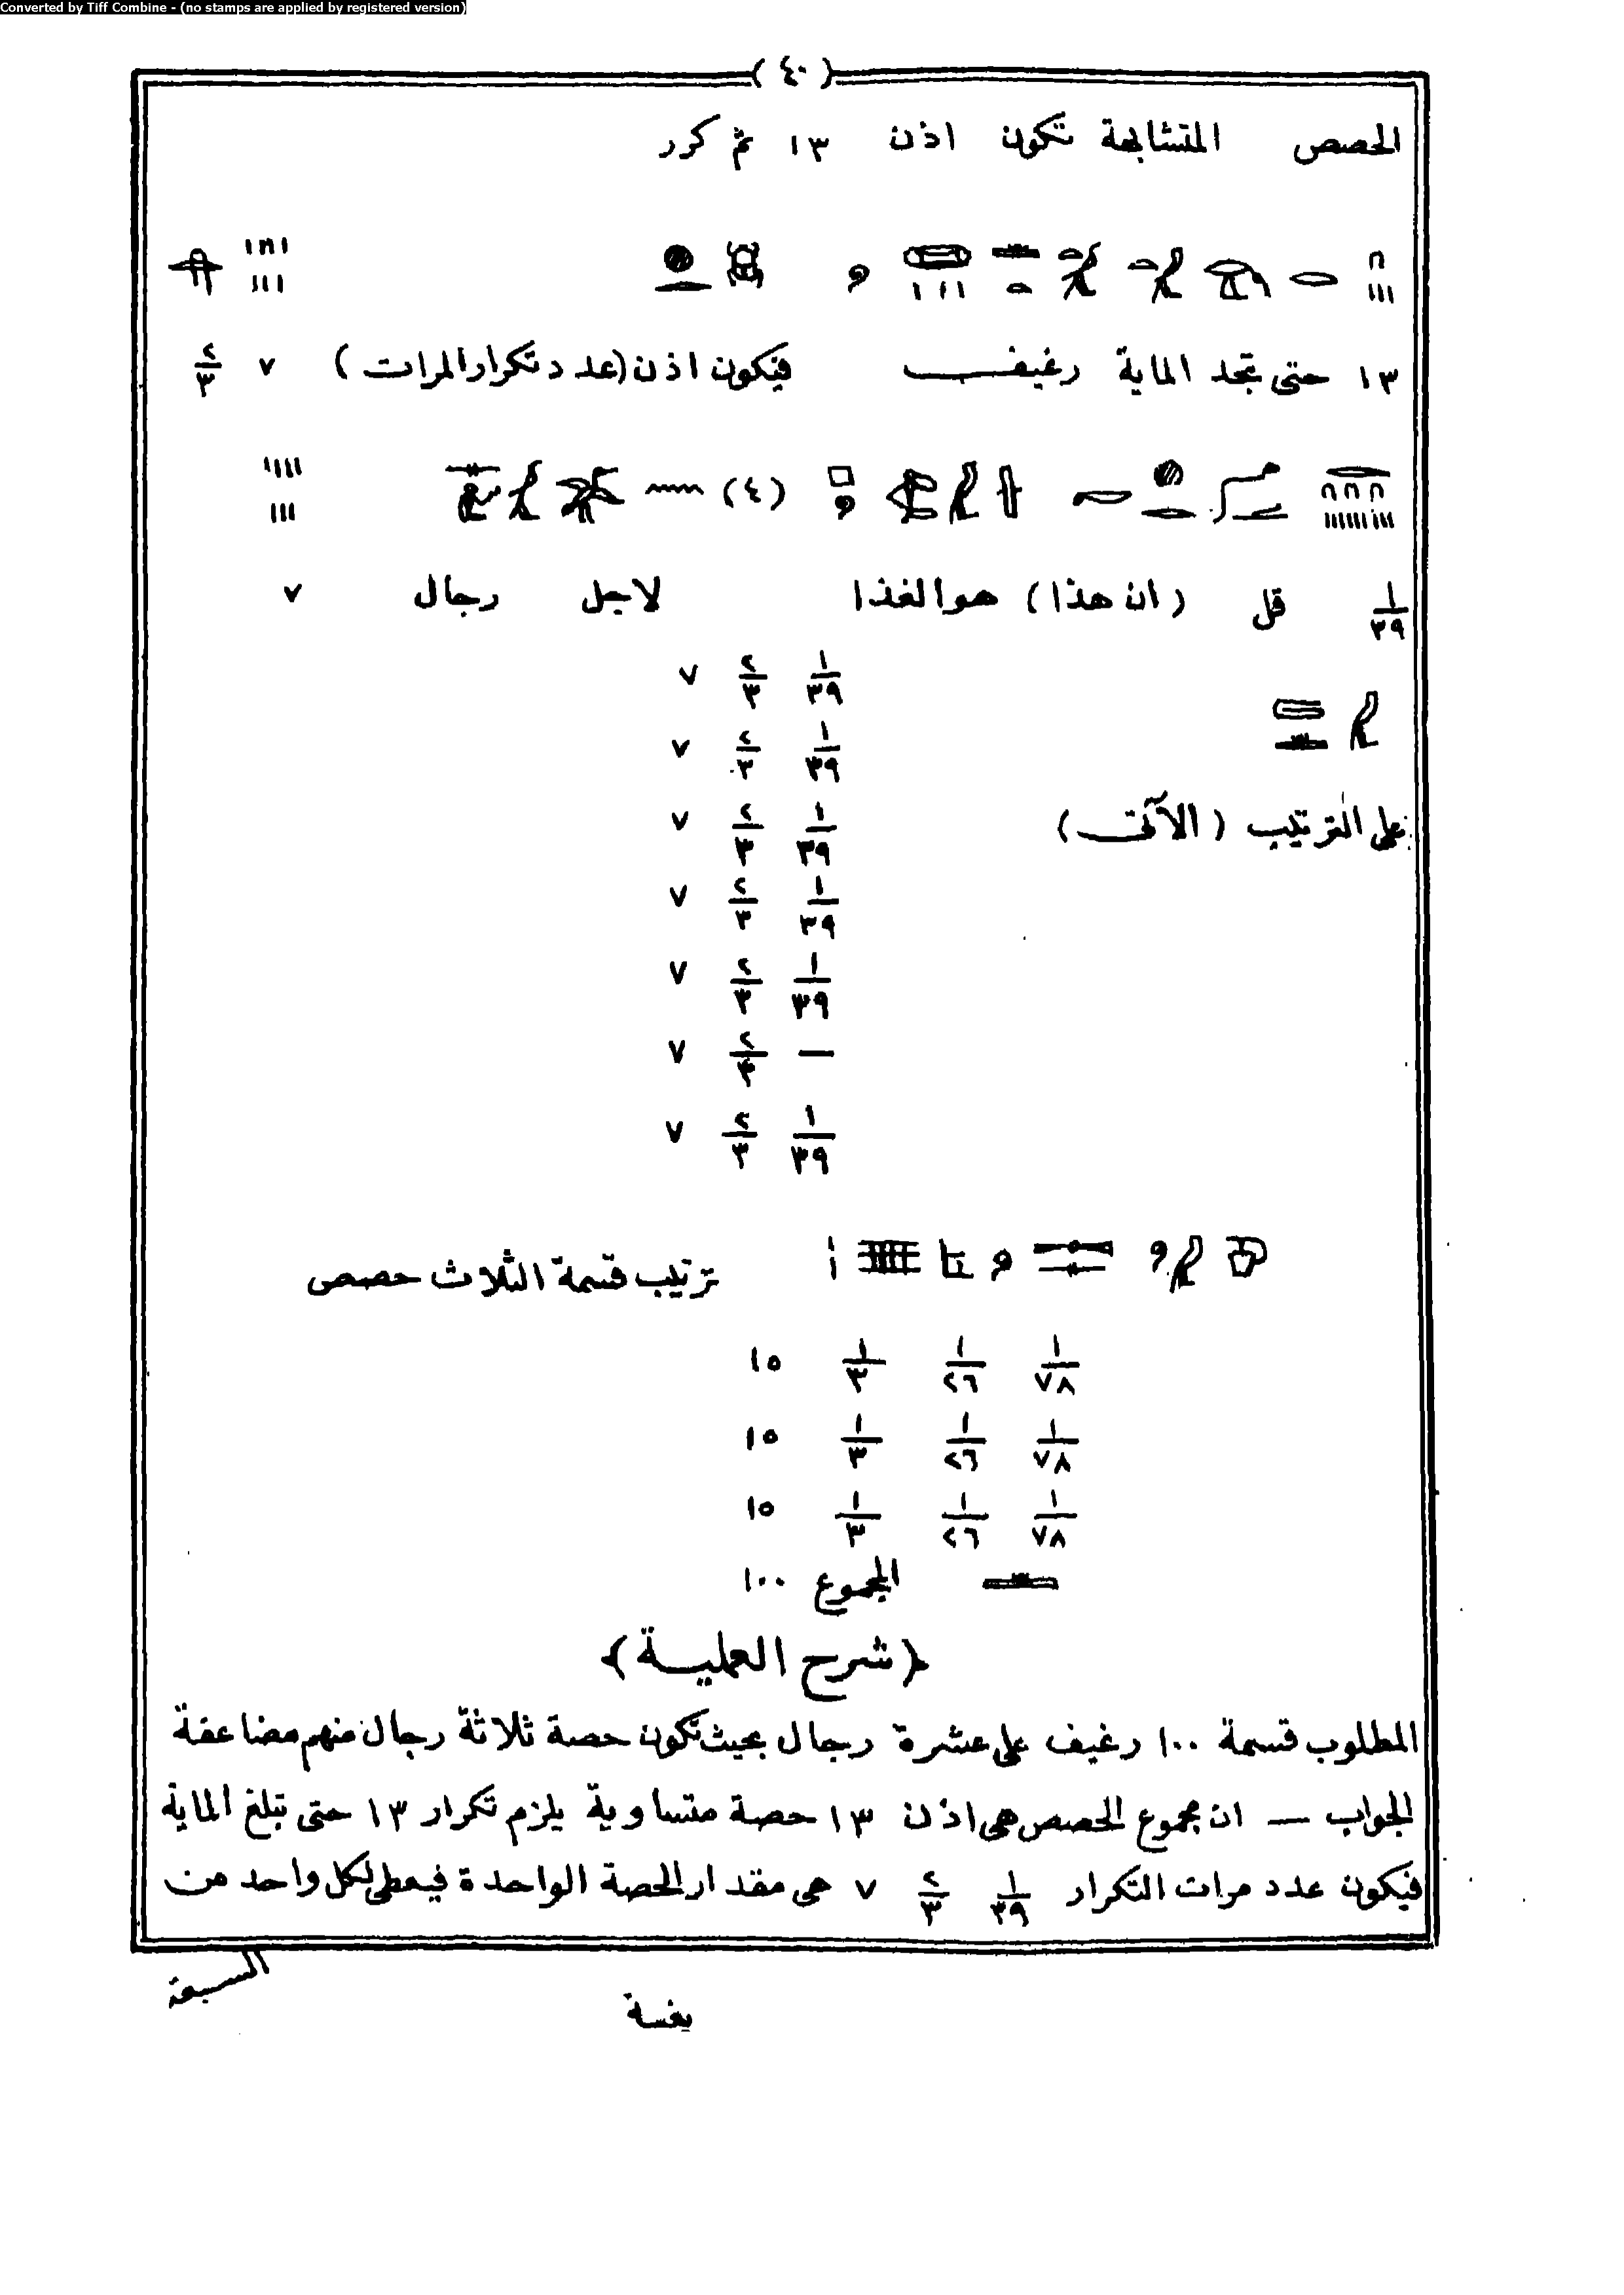 Converted by Tiff Combine - (no stamps are applied by registered version)
(٤٠)
الحصص المتشابهة تكون اذن ١٣ ثم كرر
١٣ حتى تجد الماية رغيف فيكون اذن (عدد تكرار المرات) ٧ ٢/٣
(٤)
١/٣٩ قل (ان هذا) هو الغذا لاجل رجال ٧
١/٣٩ ٢/٣ ٧
١/٣٩ ٢/٣ ٧
على الترتيب (الآتى)
١/٣٩ ٢/٣ ٧
١/٣٩ ٢/٣ ٧
١/٣٩ ٢/٣ ٧
— ٢/٣ ٧
١/٣٩ ٢/٣ ٧
ترتيب قسمة الثلاث حصص
١/٧٨ ١/٢٦ ١/٣ ١٥
١/٧٨ ١/٢٦ ١/٣ ١٥
١/٧٨ ١/٢٦ ١/٣ ١٥
المجموع ١٠٠
﴿شرح العملية﴾
المطلوب قسمة ١٠٠ رغيف على عشرة رجال بحيث تكون حصة ثلاثة رجال منهم مضاعفة
الجواب — ان مجموع الحصص هى اذن ١٣ حصة متساوية يلزم تكرار ١٣ حتى تبلغ الماية
فيكون عدد مرات التكرار ١/٣٩ ٢/٣ ٧ هى مقدار الحصة الواحدة فيعطى لكل واحد من
السبعة